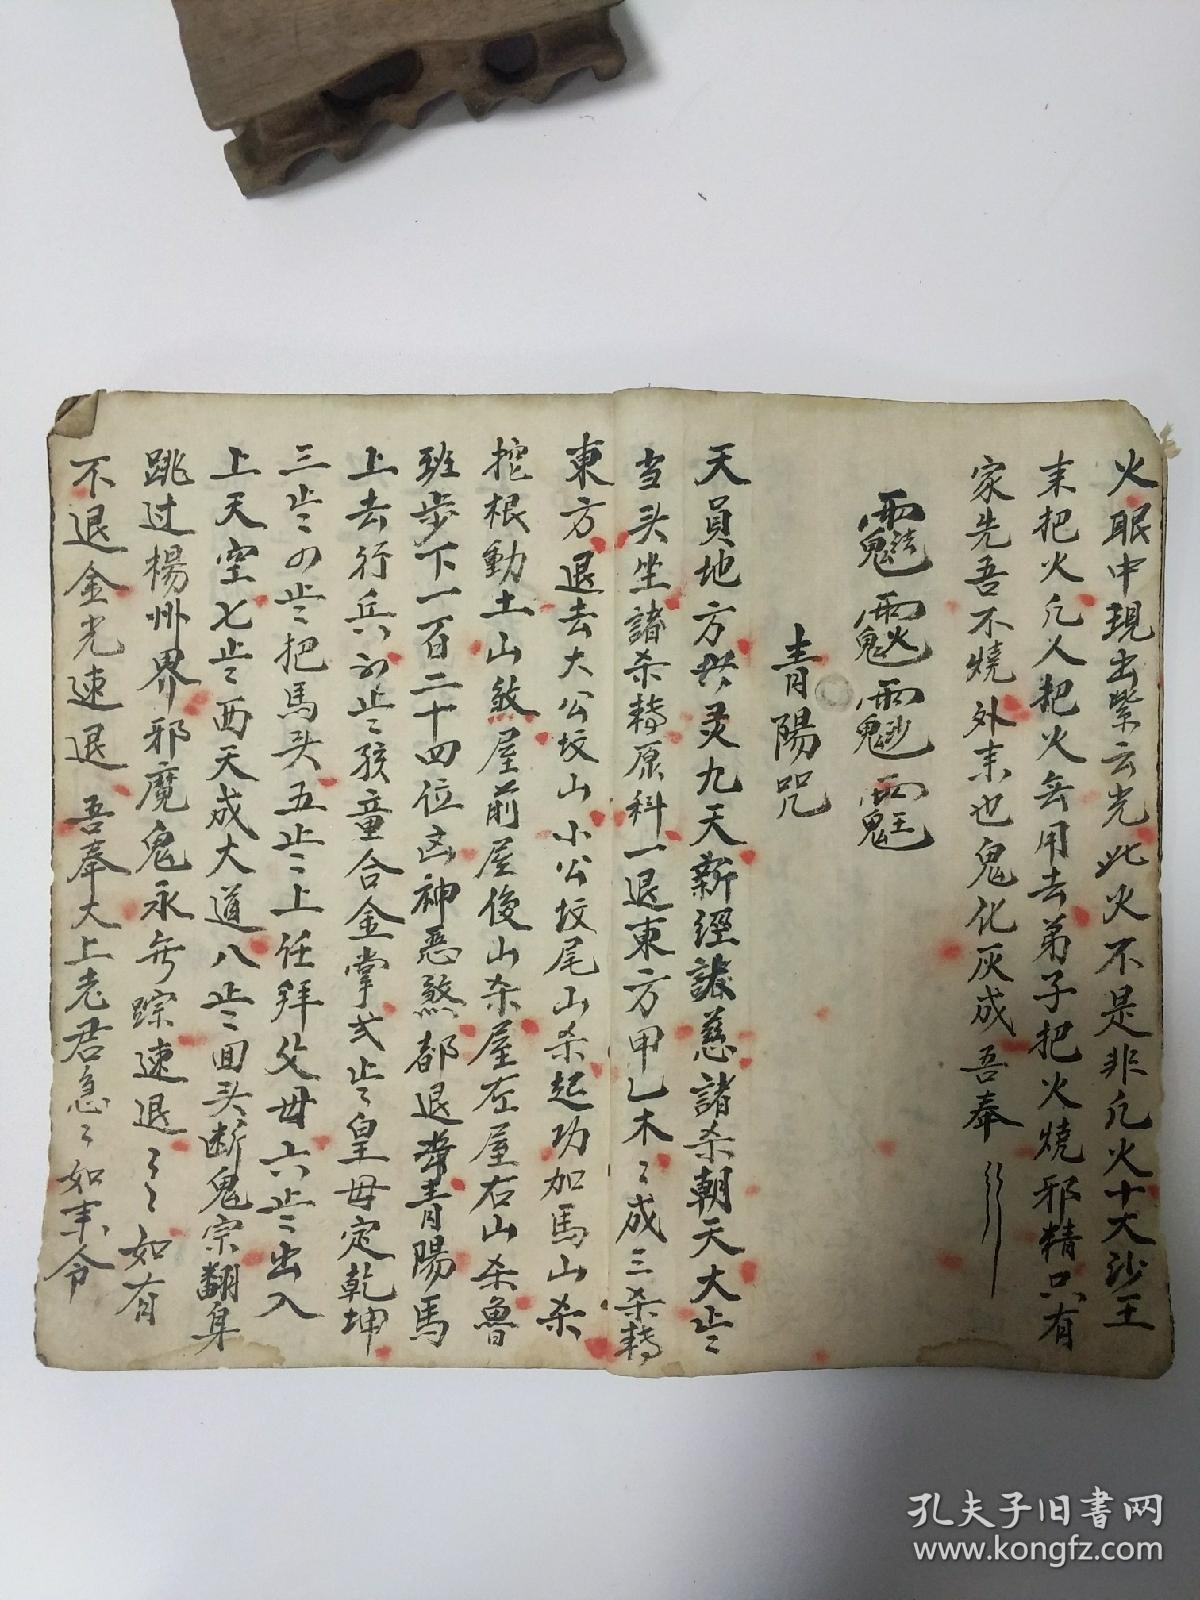 火眼中現出紫云光此火不是非凢火十大沙王
来把火凢人把火去用去弟子把火燒邪精只有
家先吾不燒外来也鬼化灰成 吾奉
青陽咒
天員地方 灵九天新經 慈諸杀朝天大步〻
当头坐諸杀轉原科一退東方甲乙木〻成三杀轉
東方退去大公坟山小公坟尾山杀起功加馬山杀
挖根動土山煞屋前屋後山杀屋左屋右山杀魯
班步下一百二十四位凶神惡煞都退 青陽馬
上去行兵 步〻孩童合金掌弍步〻皇母定乾坤
三步〻四步〻把馬头五步〻上任拜父母六步〻出入
上天空七步〻西天成大道八步〻回头断鬼宗翻身
跳过楊州界邪魔鬼永无踪速退〻〻如有
不退金光速退 吾奉太上老君急〻如律令
孔夫子旧书网
www.kongfz.com